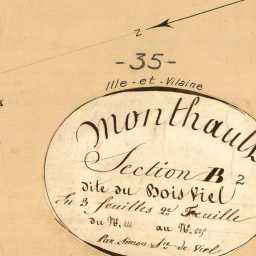 2
-35-
Ille-et-Vilaine
Monthault
Section B 2
dite du Bois Viel
En 3 feuilles 2e Feuille
du N.
au N.
Par Simon de Viel